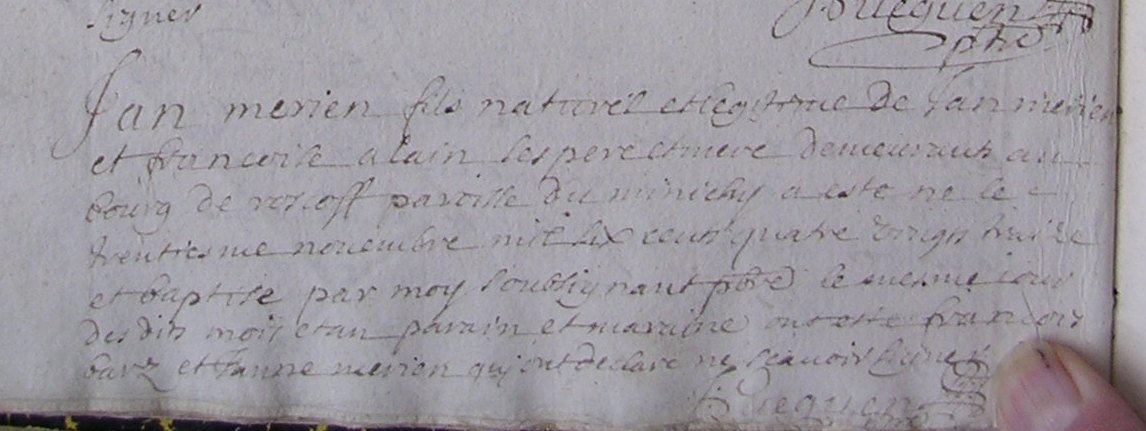 signer
ptre
Jan merien fils naturel et legitime de Jan merien
et francoise alain ses pere et mere demeurants au
bourg de roscoff paroisse du minichy a este ne le
trentiesme nouembre mil six cents quatre vingts traize
et baptise par moy soubsignant pbre le mesme iour
desdits mois et an parain et maraine ont este francois
barz et Janne merien qui ont declare ne scauoir signer